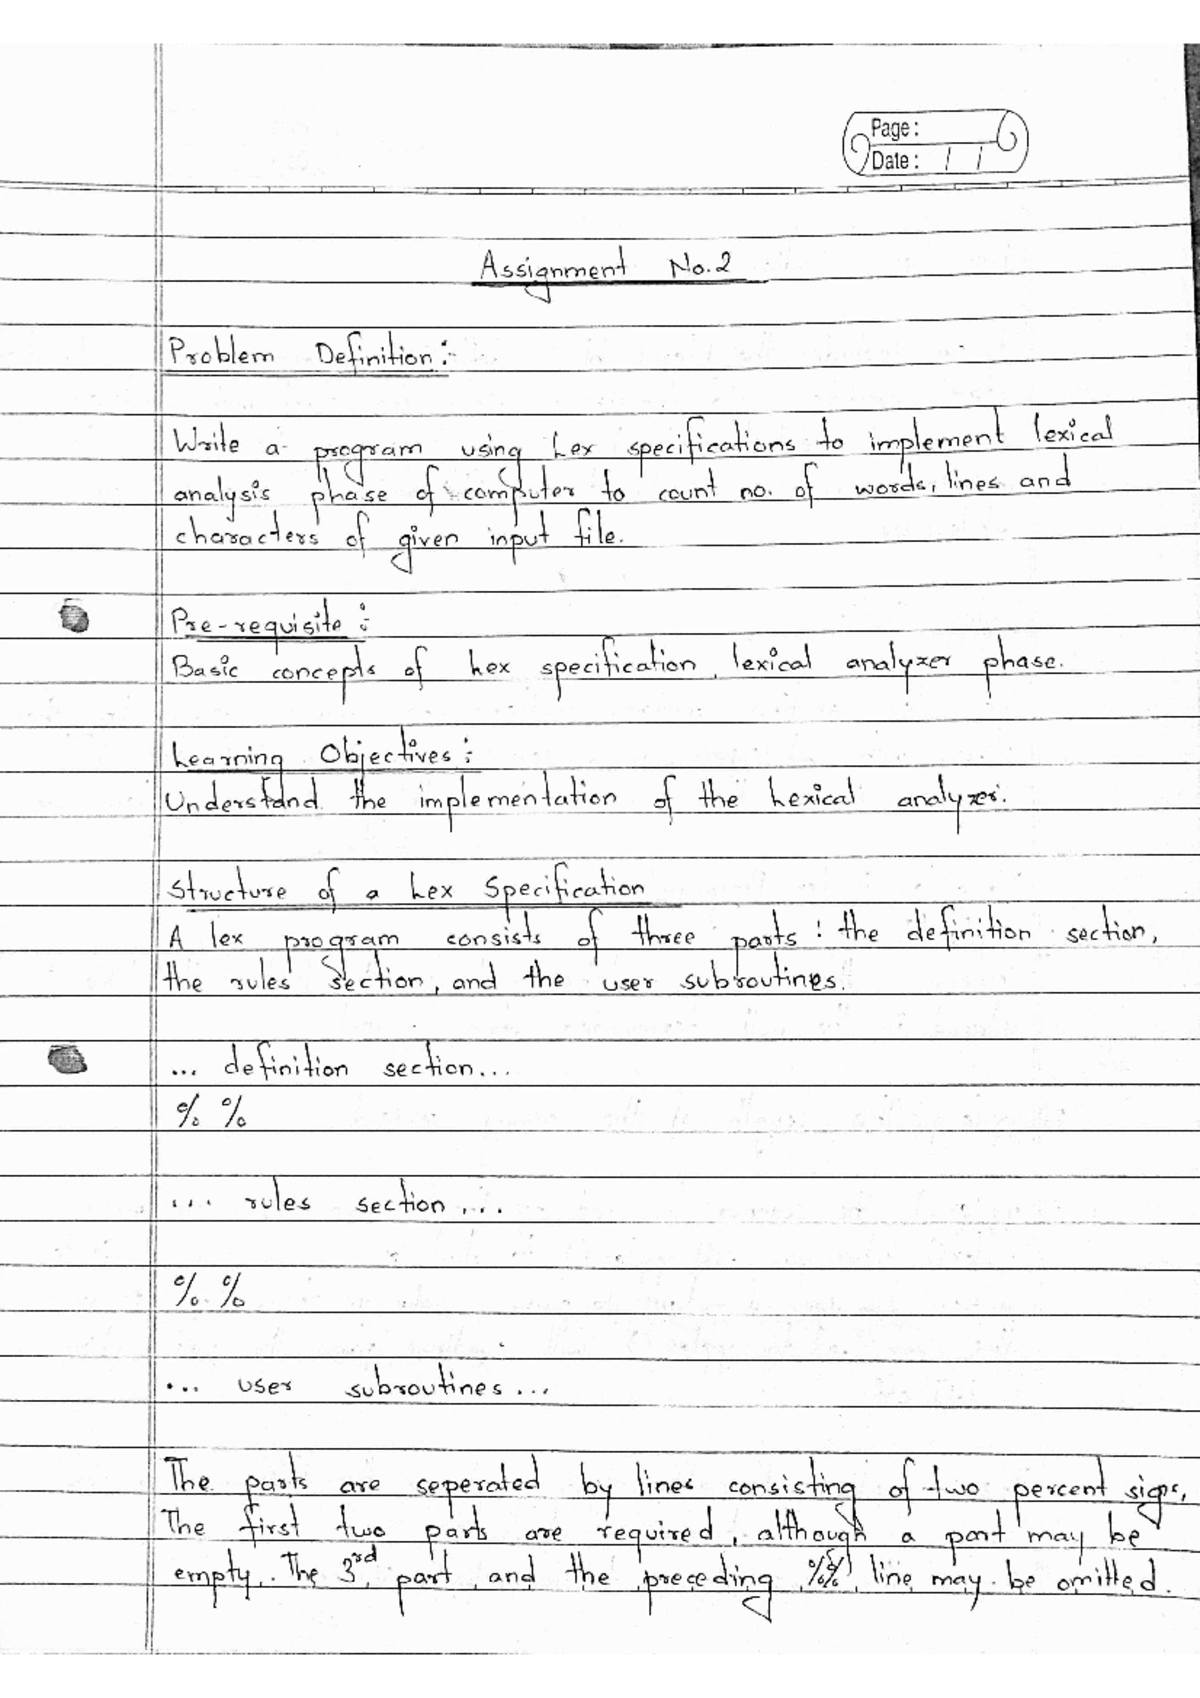 Page :
Date : / /
Assignment No.2
Problem Definition :-
Write a program using Lex specifications to implement lexical
analysis phase of computer to count no. of words, lines and
characters of given input file.
Pre-requisite :
Basic concepts of Lex specification, lexical analyzer phase.
Learning Objectives :
Understand the implementation of the Lexical analyzer.
Structure of a Lex Specification
A lex program consists of three parts : the definition section,
the rules section, and the user subroutines.
... definition section...
% %
... rules section ....
% %
... user subroutines ...
The parts are seperated by lines consisting of two percent signs,
The first two parts are required, although a part may be
empty. The 3rd part and the preceding %% line may be omitted.